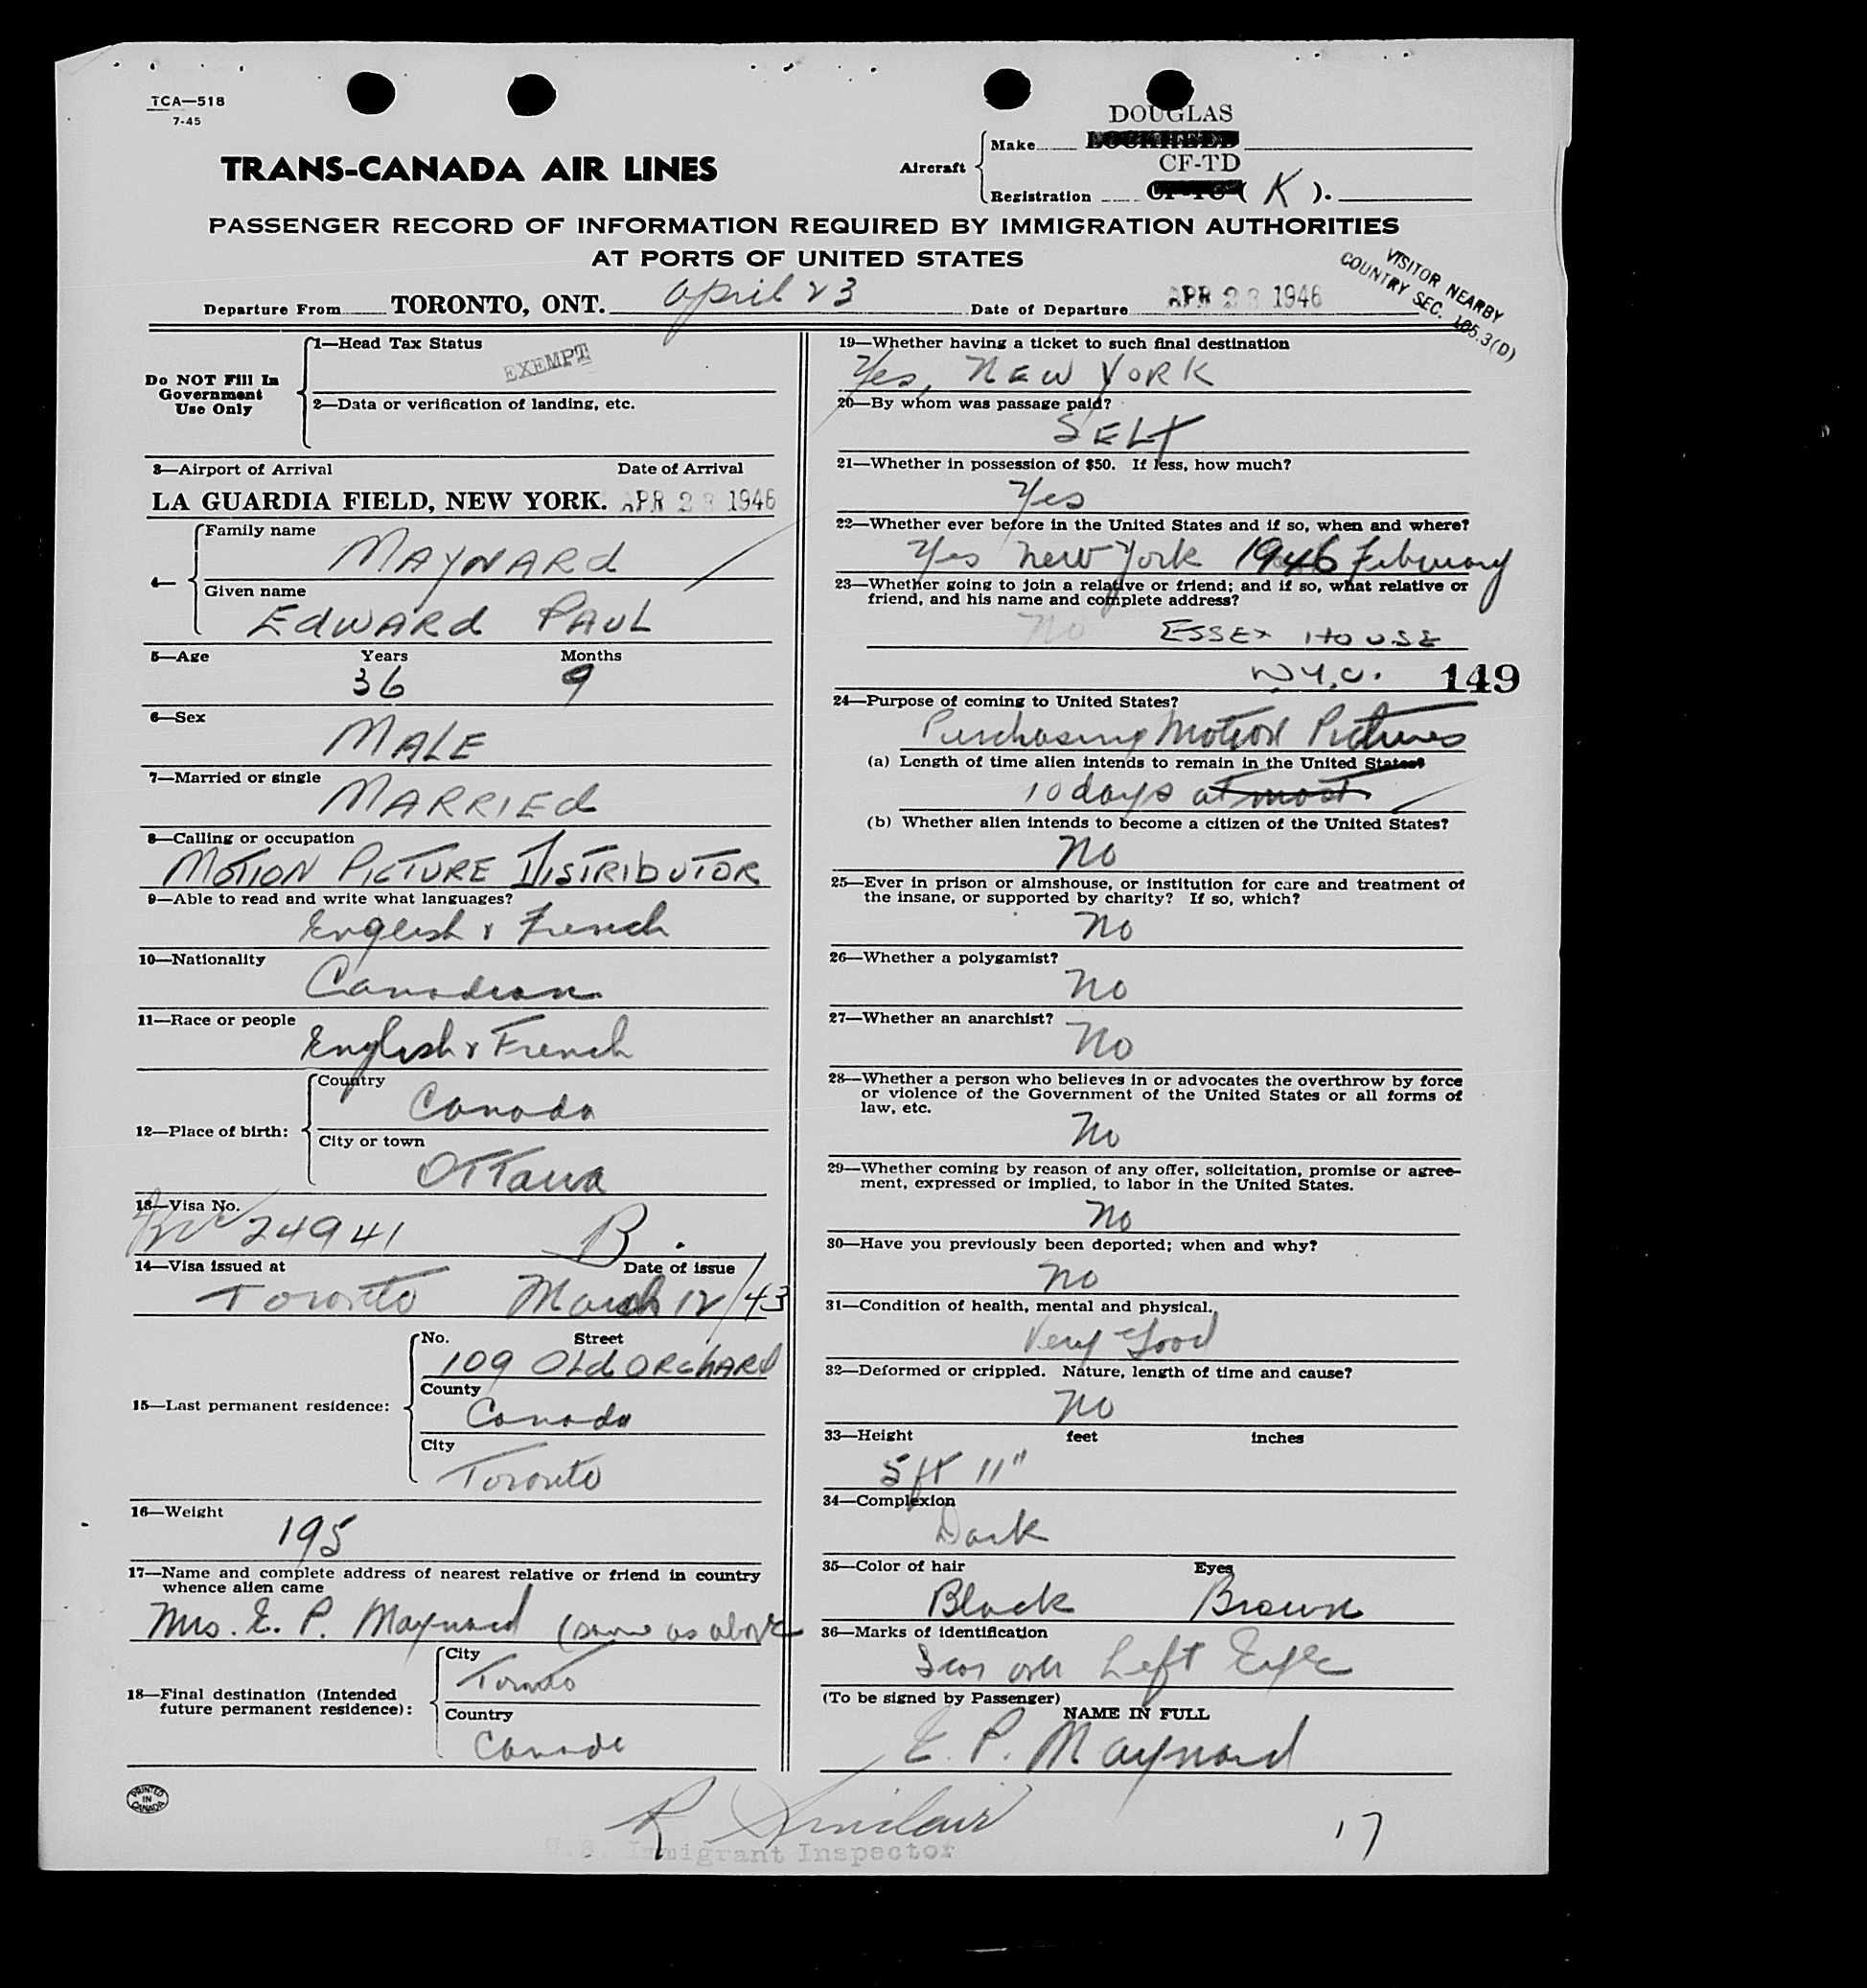 TCA—518
7-45
DOUGLAS
Aircraft
Make
CF-TD
Registration CF-TC ( K ).
TRANS-CANADA AIR LINES
PASSENGER RECORD OF INFORMATION REQUIRED BY IMMIGRATION AUTHORITIES
AT PORTS OF UNITED STATES
VISITOR NEARBY
COUNTRY SEC. 105.3(D)
Departure From TORONTO, ONT. April 23 Date of Departure APR 23 1946
Do NOT Fill In
Government
Use Only
1—Head Tax Status
EXEMPT
2—Data or verification of landing, etc.
3—Airport of Arrival Date of Arrival
LA GUARDIA FIELD, NEW YORK. APR 23 1946
4—
Family name
MAYNARd
Given name
EdWARd PAUL
5—Age Years Months
36 9
6—Sex
MALE
7—Married or single
MARRIEd
8—Calling or occupation
MOTION PICTURE DISTRIbUTOR
9—Able to read and write what languages?
English & French
10—Nationality
Canadian
11—Race or people
English & French
12—Place of birth:
Country
Canada
City or town
OTTawa
13—Visa No.
24941 B.
14—Visa issued at Date of issue
Toronto March 12/43
15—Last permanent residence:
No. Street
109 OLd ORChARd
County
Canada
City
Toronto
16—Weight
195
17—Name and complete address of nearest relative or friend in country
whence alien came
Mrs. E. P. Maynard (same as above
18—Final destination (Intended
future permanent residence):
City
Toronto
Country
Canada
19—Whether having a ticket to such final destination
Yes, NEW YORK
20—By whom was passage paid?
SELf
21—Whether in possession of $50. If less, how much?
Yes
22—Whether ever before in the United States and if so, when and where?
Yes New York 1946 February
23—Whether going to join a relative or friend; and if so, what relative or
friend, and his name and complete address?
No ESSEX HOUSE
N.Y.C. 149
24—Purpose of coming to United States?
Purchasing Motion Pictures
(a) Length of time alien intends to remain in the United States?
10 days at most
(b) Whether alien intends to become a citizen of the United States?
No
25—Ever in prison or almshouse, or institution for care and treatment of
the insane, or supported by charity? If so, which?
No
26—Whether a polygamist?
No
27—Whether an anarchist?
No
28—Whether a person who believes in or advocates the overthrow by force
or violence of the Government of the United States or all forms of
law, etc.
No
29—Whether coming by reason of any offer, solicitation, promise or agree-
ment, expressed or implied, to labor in the United States.
No
30—Have you previously been deported; when and why?
No
31—Condition of health, mental and physical.
Very Good
32—Deformed or crippled. Nature, length of time and cause?
No
33—Height feet inches
5 ft 11"
34—Complexion
Dark
35—Color of hair Eyes
Black Brown
36—Marks of identification
Scar over Left Eye
(To be signed by Passenger)
NAME IN FULL
E. P. Maynard
PRINTED
IN
CANADA
R Sinclair
U.S. Immigrant Inspector
17